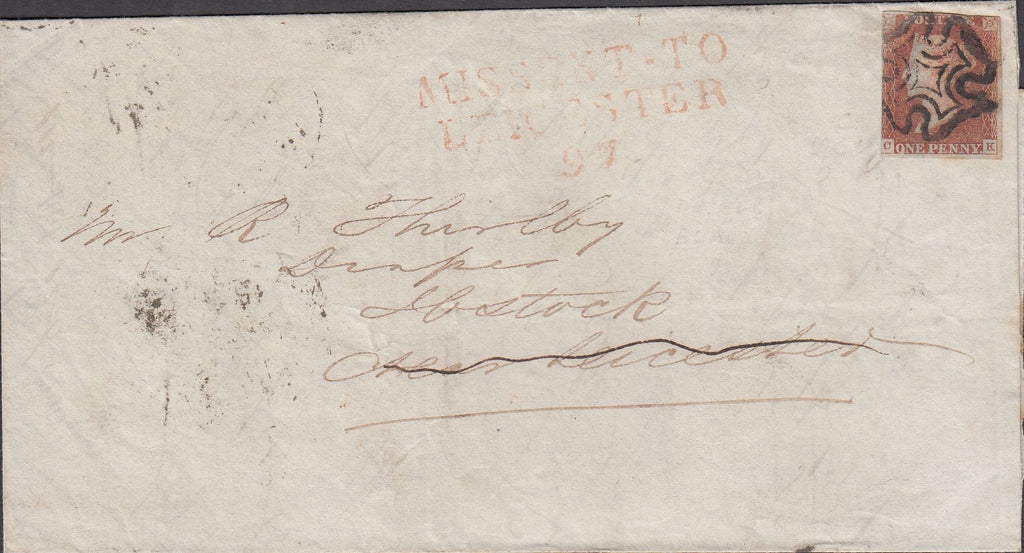 MISSENT-TO
LEICESTER
97
POSTAGE
C ONE PENNY K
Mr R Thirlby
Draper
Ibstock
Near Leicester